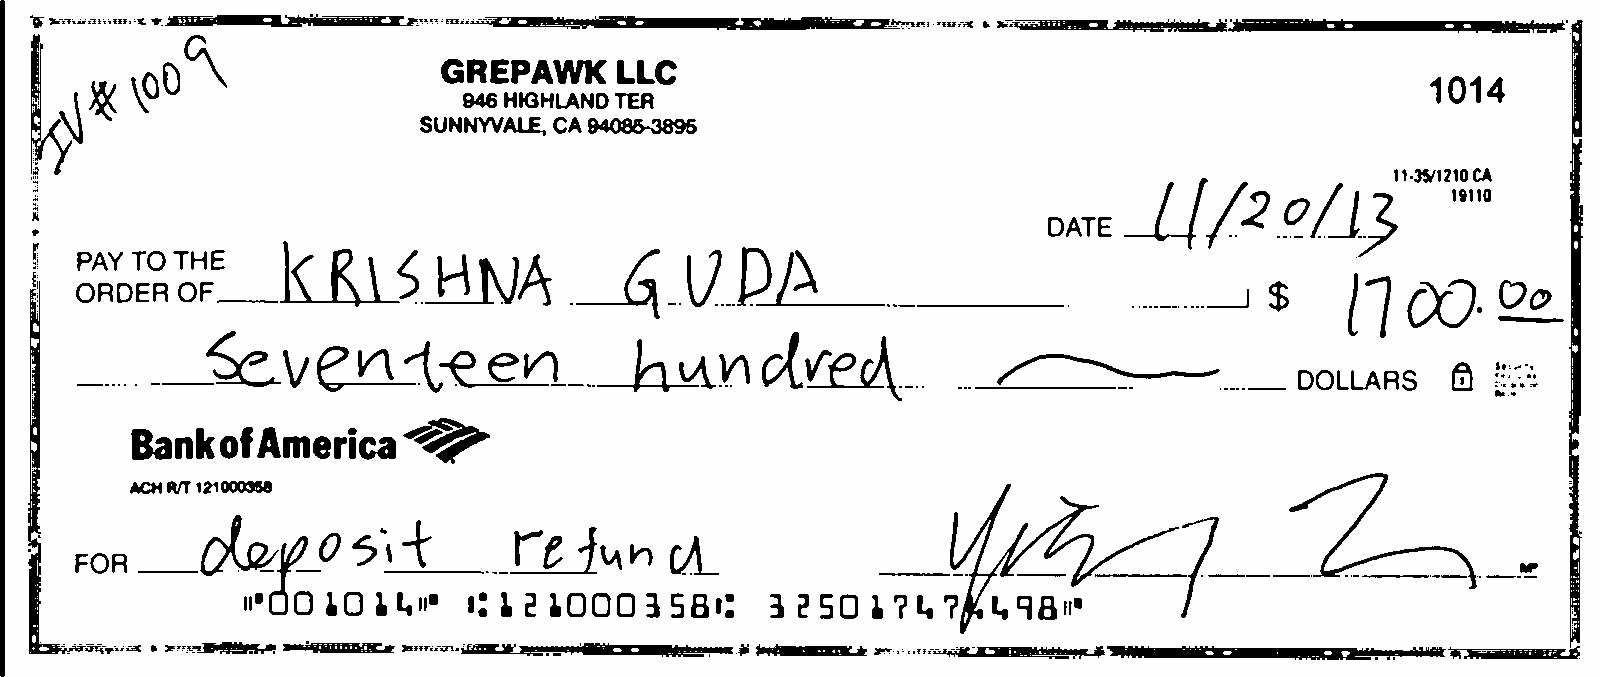 IV# 1009
GREPAWK LLC
946 HIGHLAND TER
SUNNYVALE, CA 94085-3895
1014
11-35/1210 CA
19110
DATE 11/20/13
PAY TO THE
ORDER OF KRISHNA GUDA $ 1700.00
Seventeen hundred DOLLARS
Bank of America
ACH R/T 121000358
FOR deposit refund
MP
⑈001014⑈ ⑆121000358⑆ 325017474498⑈